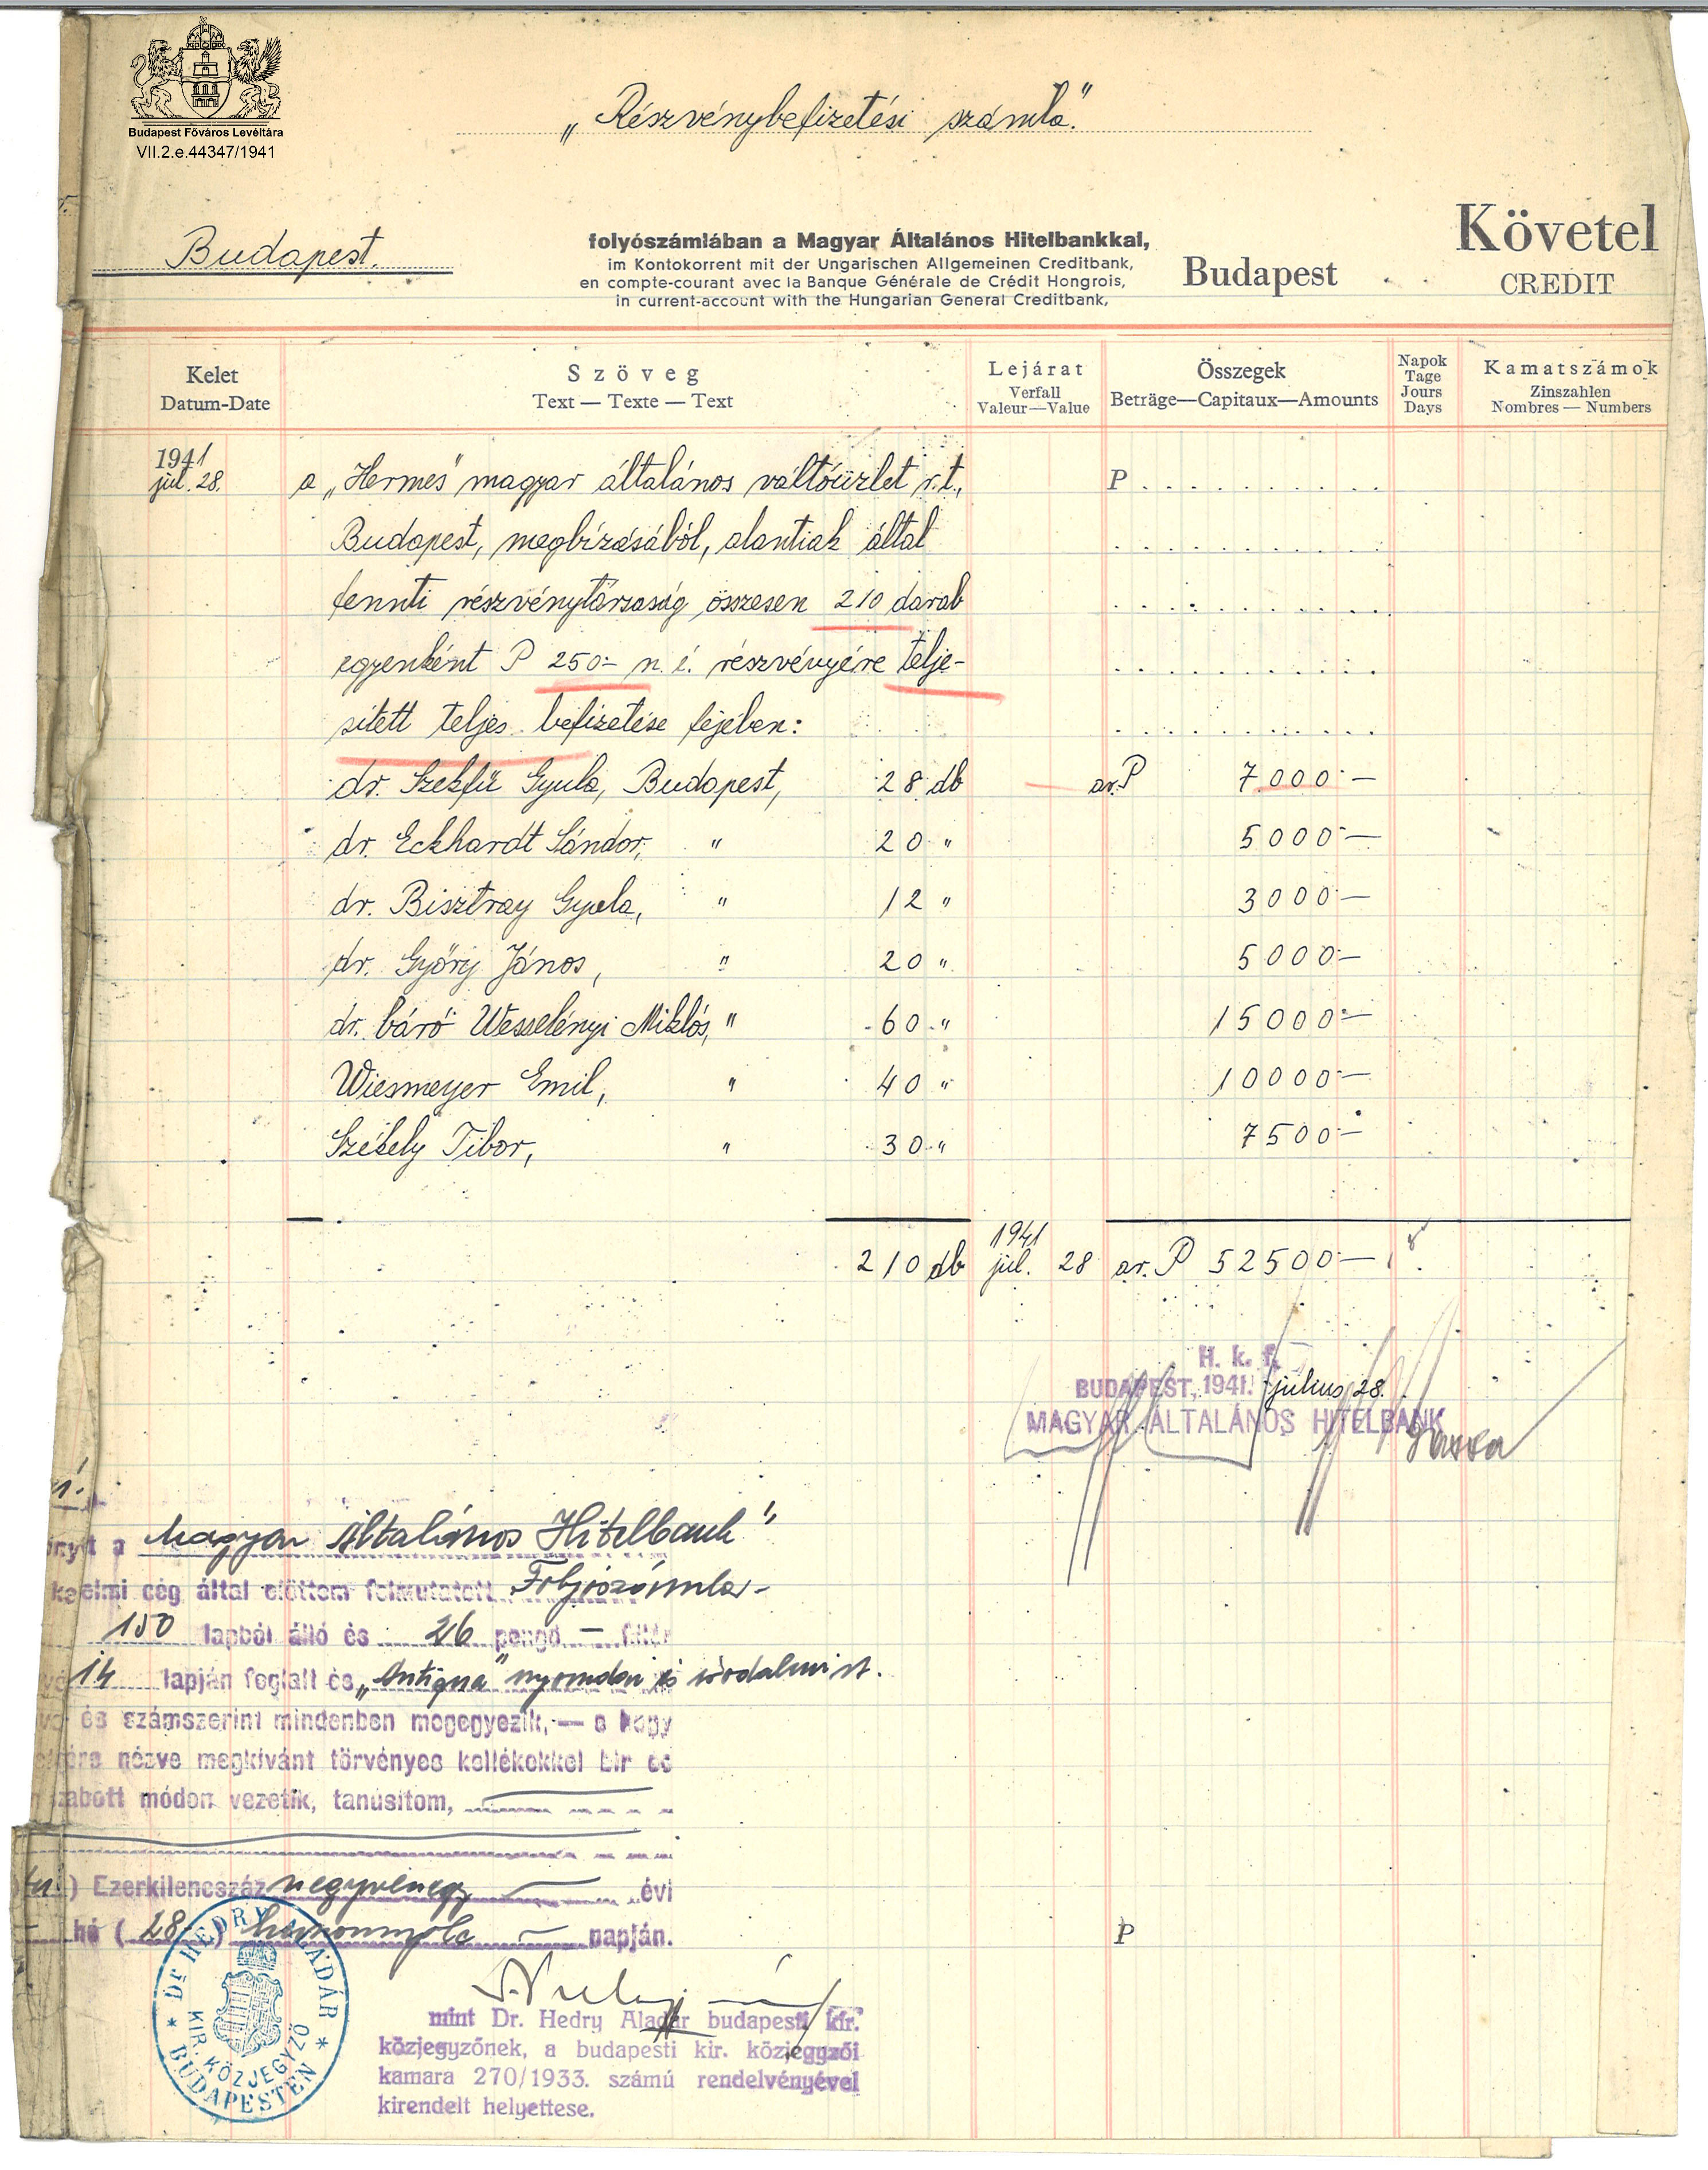 Budapest Főváros Levéltára
VII.2.e.44347/1941
„Részvénybefizetési számla."
Budapest.
folyószámlában a Magyar Általános Hitelbankkal,
im Kontokorrent mit der Ungarischen Allgemeinen Creditbank,
en compte-courant avec la Banque Générale de Crédit Hongrois,
in current-account with the Hungarian General Creditbank,
Budapest
Követel
CREDIT
Kelet
Datum-Date
Szöveg
Text — Texte — Text
Lejárat
Verfall
Valeur—Value
Összegek
Beträge—Capitaux—Amounts
Napok
Tage
Jours
Days
Kamatszámok
Zinszahlen
Nombres — Numbers
1941
júl. 28. a „Hermes" magyar általános váltóüzlet r.t., P
Budapest, megbízásából, alantiak által
fennti részvénytársaság összesen 210 darab
egyenként P 250.- n. é. részvényére telje-
sített teljes befizetése fejében:
dr. Szekfü Gyula, Budapest, 28 db ar. P 7000.—
dr. Eckhardt Sándor, " 20 " 5000.—
dr. Bisztray Gyula, " 12 " 3000.—
dr. Győry János, " 20 " 5000.—
dr. báró Wesselényi Miklós, " 60 " 15000.—
Wiesmeyer Emil, " 40 " 10000.—
Székely Tibor, " 30 " 7500.—
210 db 1941 júl. 28 ar. P 52500.—
H. k. f.
BUDAPEST, 1941. július 28.
MAGYAR ÁLTALÁNOS HITELBANK
a Magyar Általános Hitelbank"
cég által előttem felmutatott Folyószámla-
150 lapból álló és 26 pengő — fillér
14 lapján foglalt és „Antiqua" nyomdai és irodalmi rt.
és számszerint mindenben megegyezik, — s hogy
nézve megkívánt törvényes kellékekkel bir és
módon vezetik, tanusítom,
) Ezerkilencszáz negyvenegy évi
hó ( 28 ) huszonnyolc napján.
Dr HEDRY ALADÁR
KIR. KÖZJEGYZŐ
BUDAPESTEN
P
mint Dr. Hedry Aladár budapesti kir.
közjegyzőnek, a budapesti kir. közjegyzői
kamara 270/1933. számú rendelvényével
kirendelt helyettese.